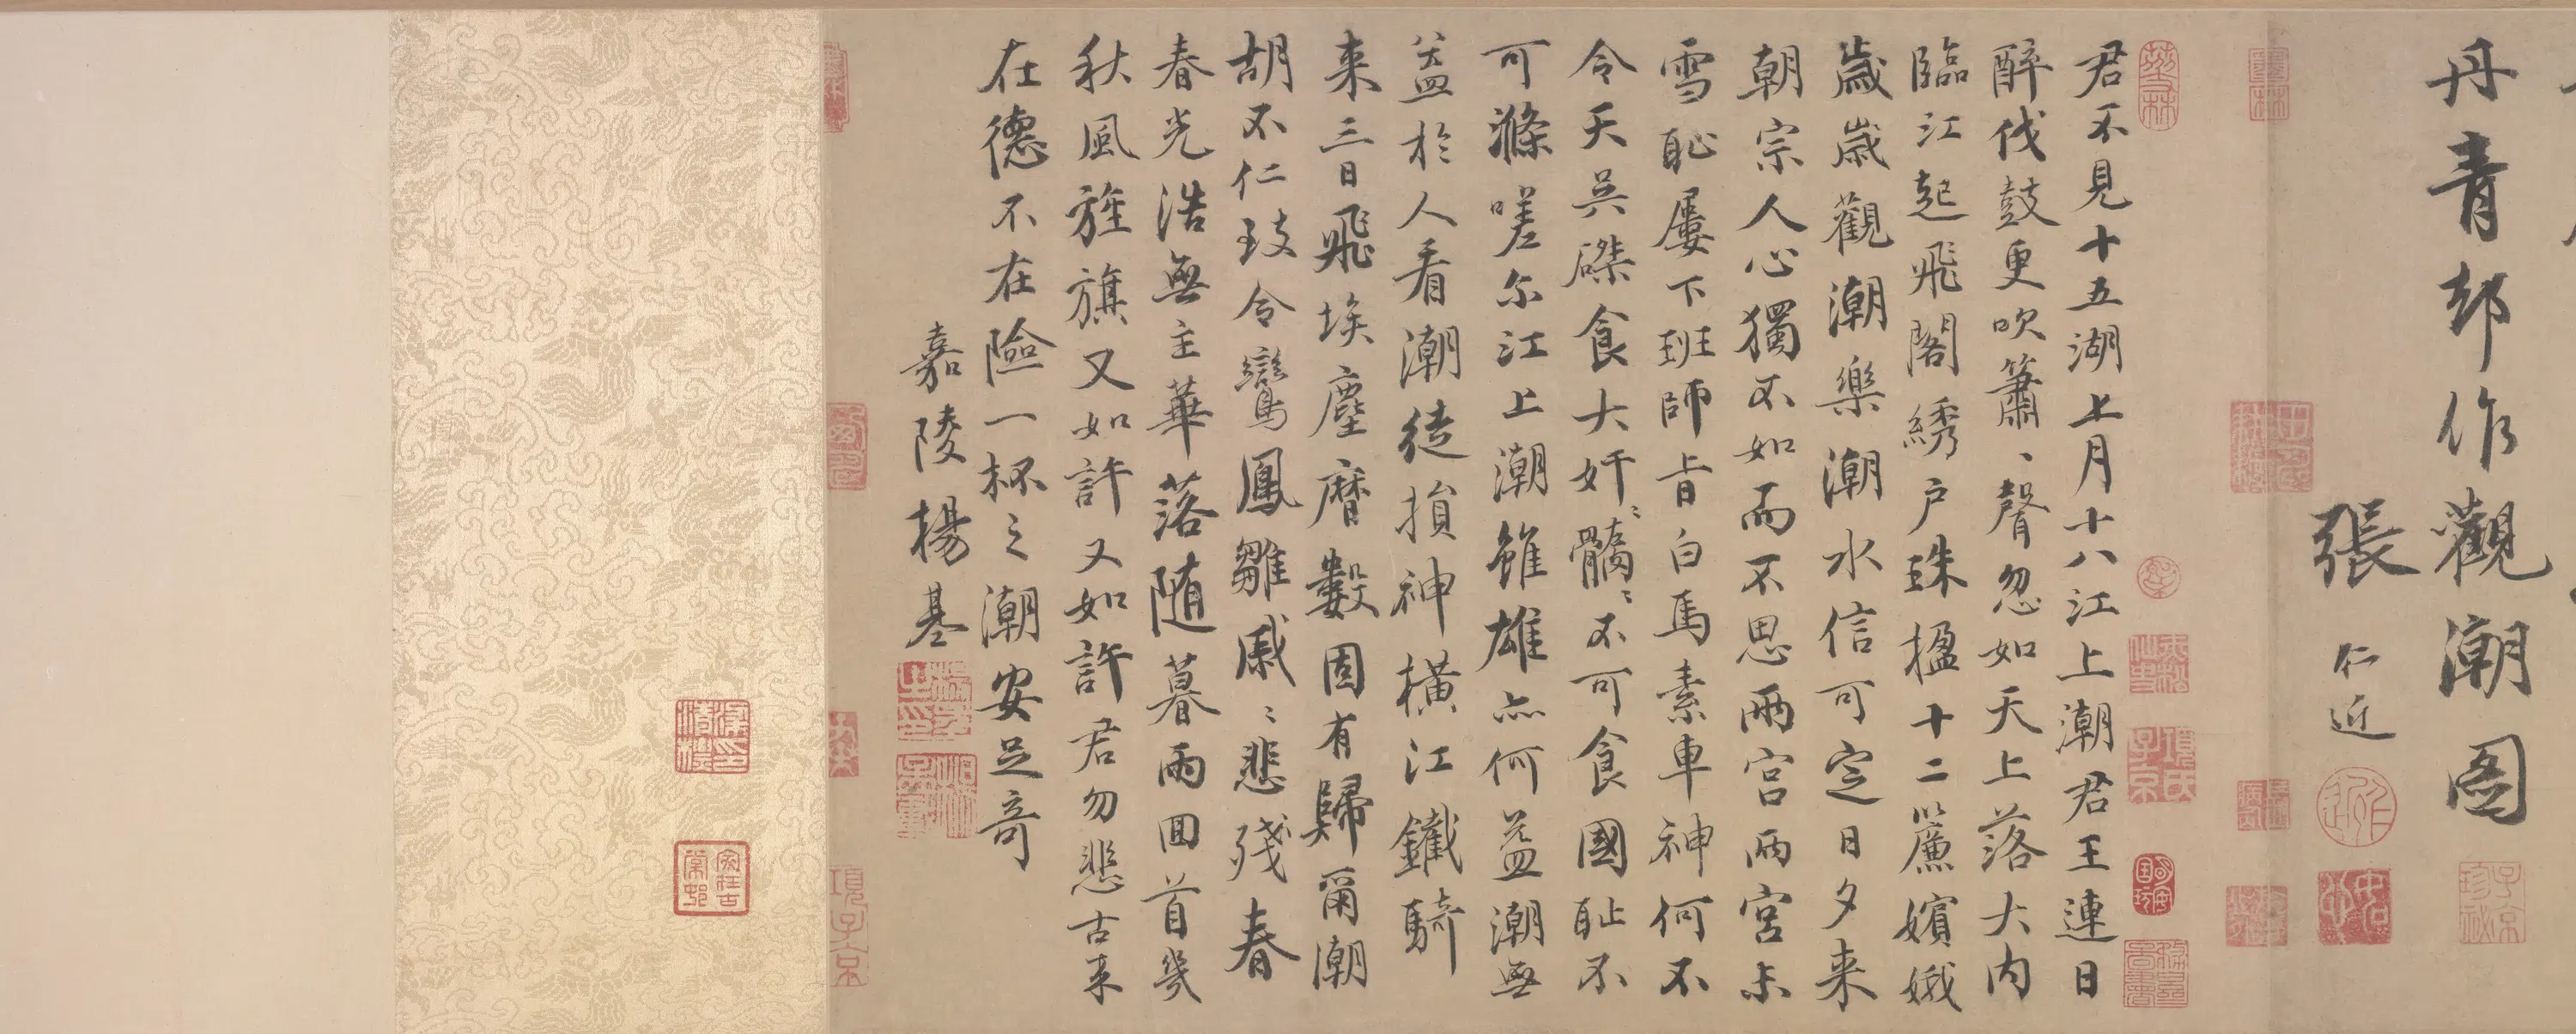 丹青却作觀潮圖
張仁近
君不見十五湖上月十八江上潮君王連日
醉伐鼓更吹簫、聲忽如天上落大內
臨江起飛閣綉户珠楹十二簾嬪娥
歲歲觀潮樂潮水信可定日夕来
朝宗人心獨不如而不思兩宮兩宮未
雪恥屢下班師旨白馬素車神何不
令天吳磔食大奸〻髑〻不可食國恥不
可滌嗟尔江上潮雖雄亦何益潮無
益於人看潮徒損神橫江鐵騎
来三日飛埃塵曆數固有歸爾潮
胡不仁致令鸞鳳雛戚〻悲殘春
春光浩無主華落随暮雨回首幾
秋風旌旗又如許又如許君勿悲古来
在德不在險一杯之潮安足奇
嘉陵楊基
項子京
子京珍秘
項氏子京